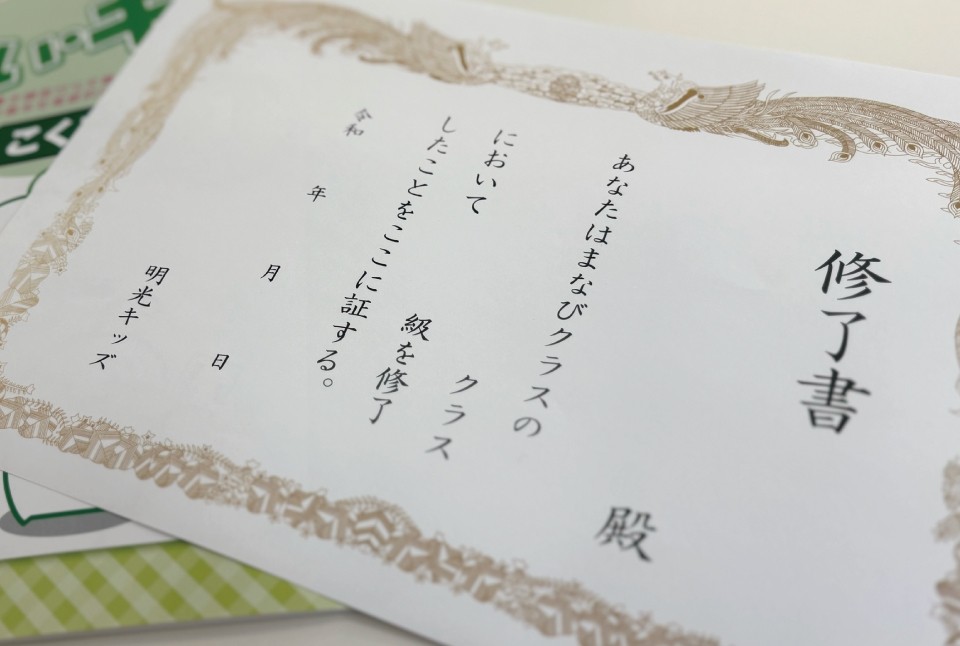 修了書
殿
あなたはまなびクラスの
クラス
において
級を修了
したことをここに証する。
令和 年 月 日
明光キッズ
こく